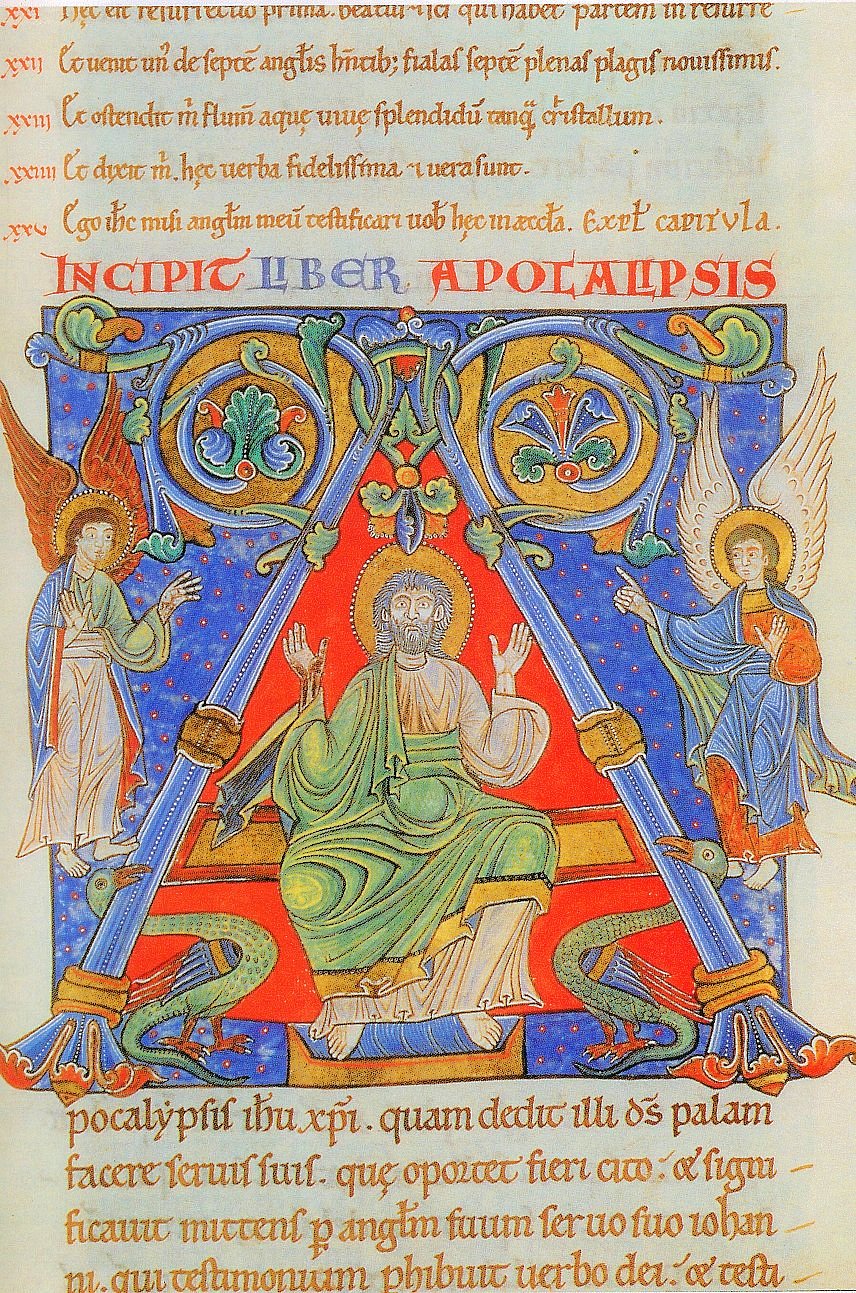 xxi Hęc est resurrectio prima. beatus ⁊ sc̄s qui habet partem in resurre
xxii Et uenit un' de septē angłis hn̄tib; fialas septē plenas plagis nouissimis.
xxiii Et ostendit m̄ flum̄ aquę uiuę splendidū tanq̄ cristallum.
xxiiii Et dixit m̄. hęc uerba fidelissima ⁊ uera sunt.
xxv Ego ih̄c misi angłm meū testificari uob̄ hęc in æccła. Expł capitvla.
INCIPIT LIBER APOCALIPSIS
A
pocalẏpsis ih̄u xp̄i. quam dedit illi d̄s palam
facere seruis suis. quę oportet fieri cito. & signi
ficauit mittens ꝑ angłm suum seruo suo iohan
ni. qui testimonium phibuit uerbo dei. & testi